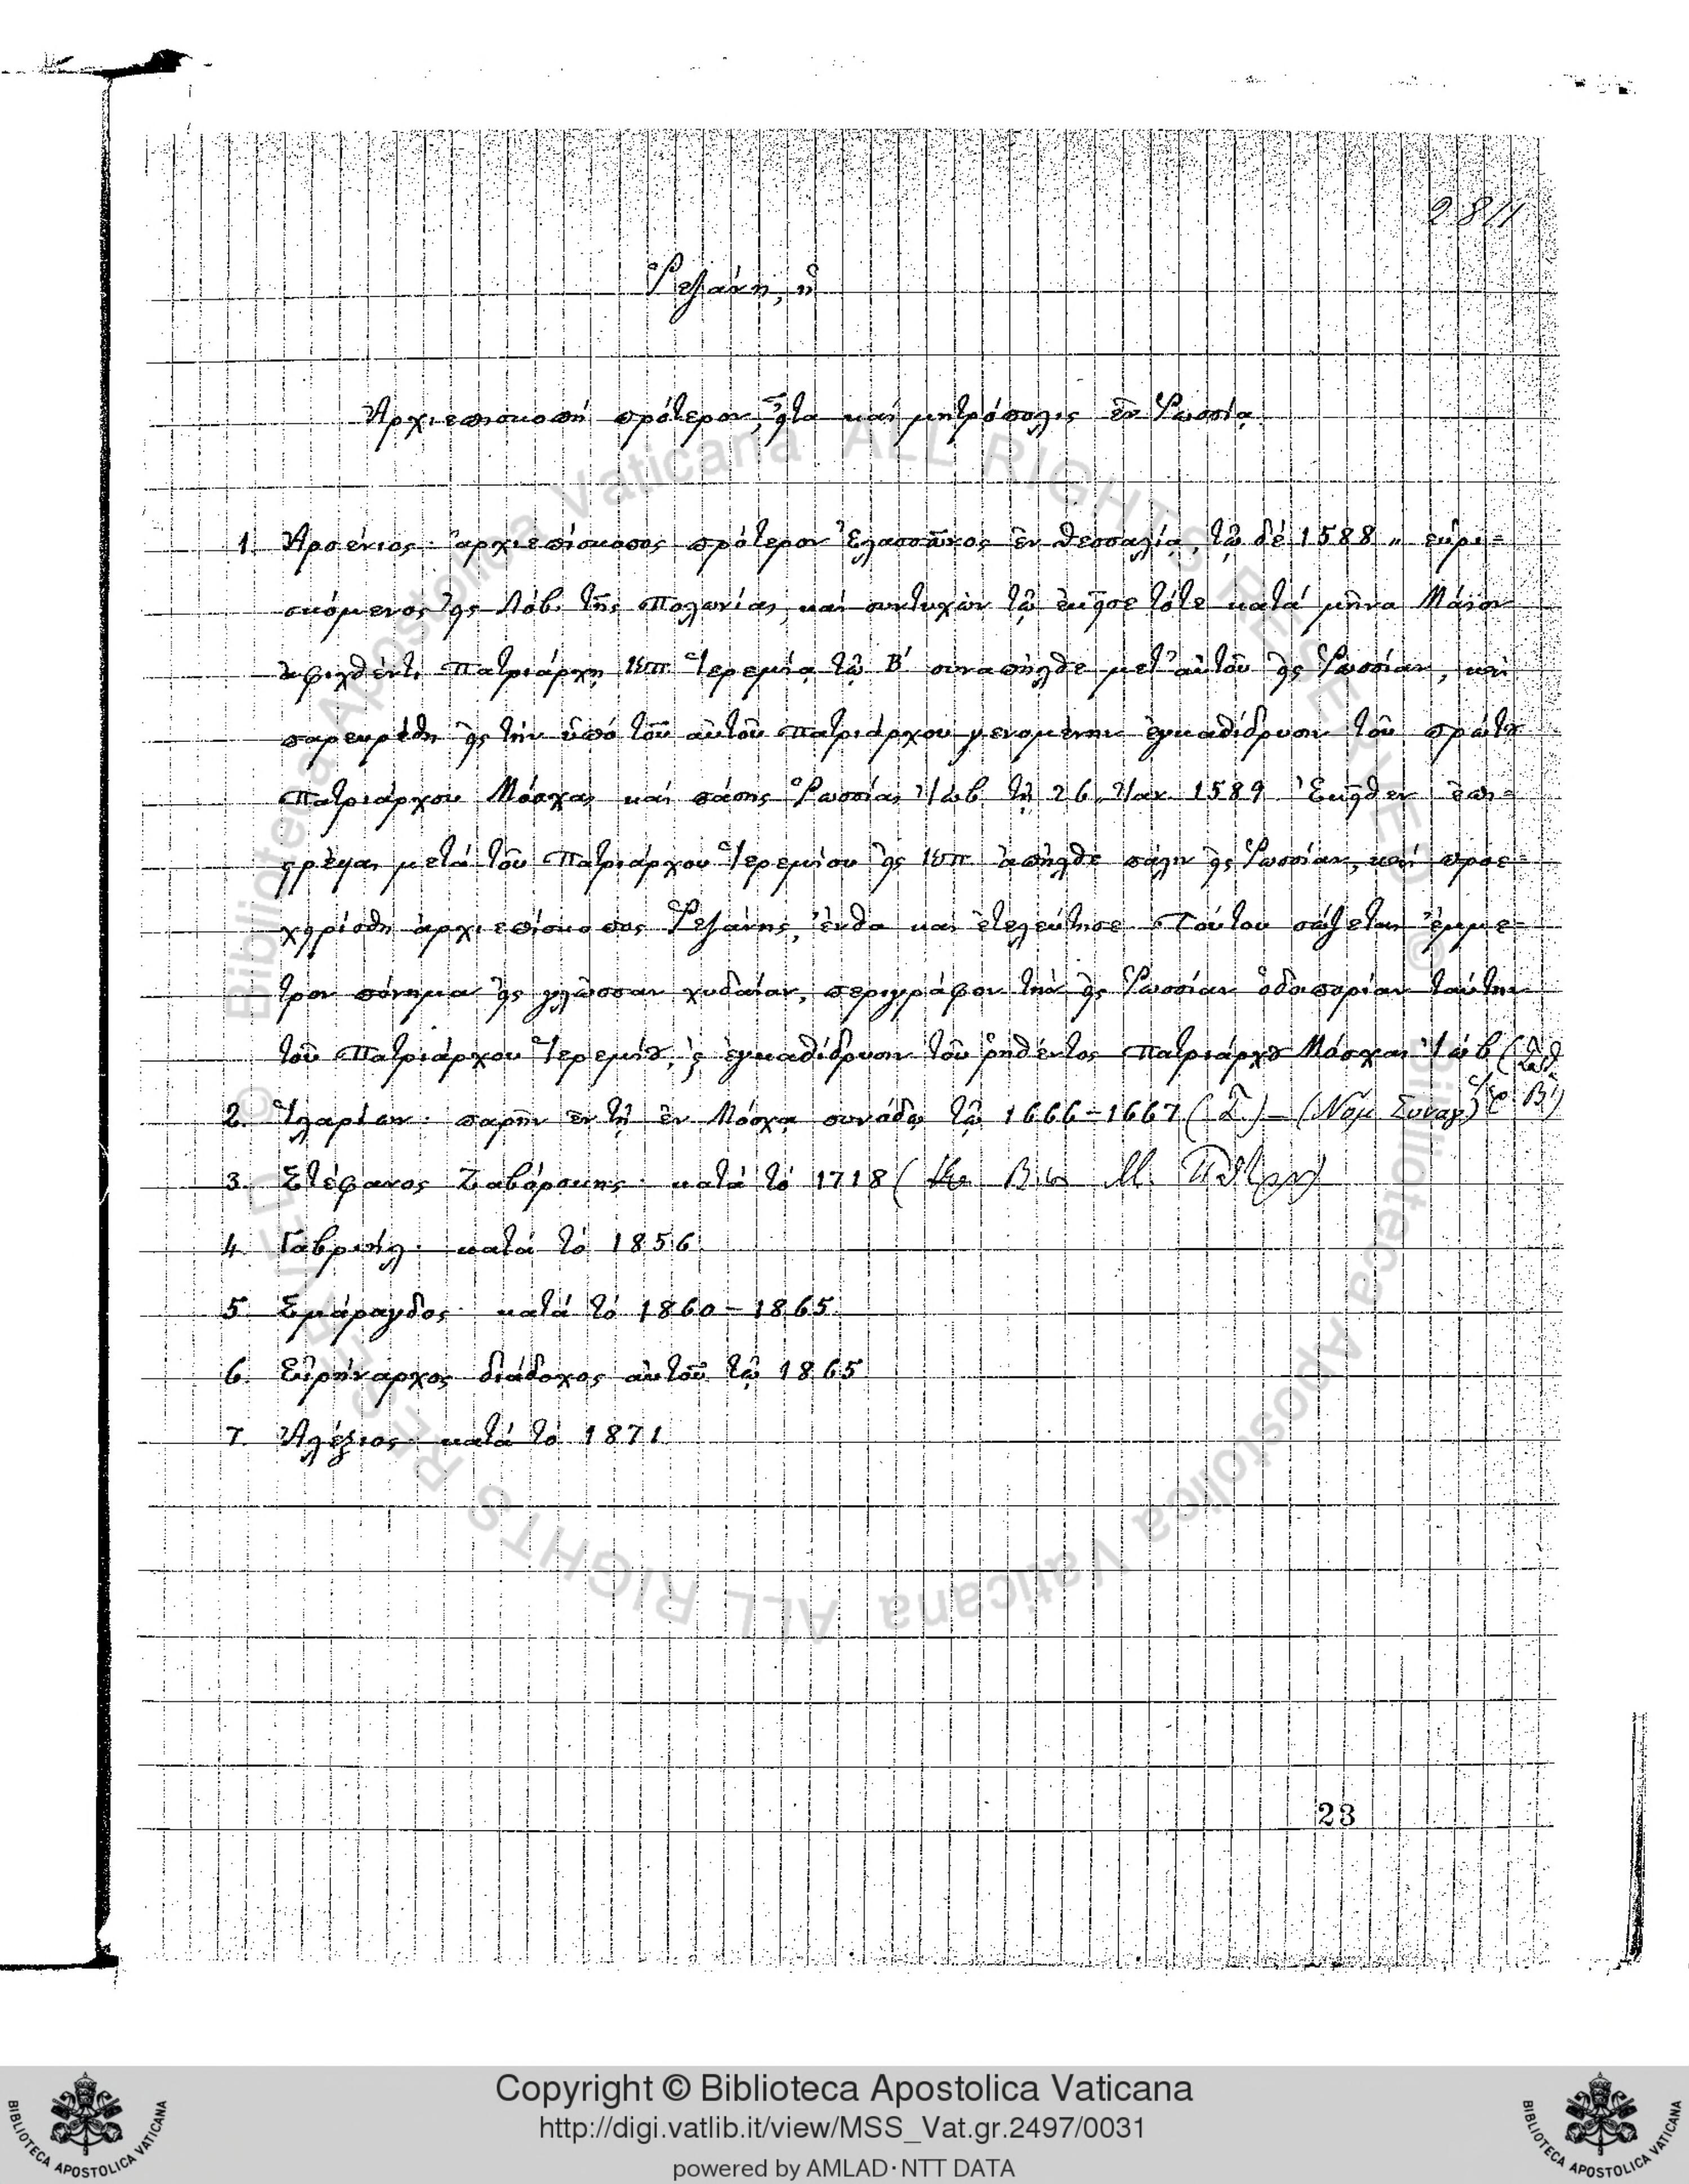 2811
Ῥεζάνη, ἡ
Ἀρχιεπισκοπή πρότερον, εἶτα καί μητρόπολις ἐν Ῥωσσίᾳ
1. Ἀρσένιος· ἀρχιεπίσκοπος πρότερον Ἐλασσῶνος ἐν Θεσσαλίᾳ, τῷ δέ 1588 εὑρι=
σκόμενος εἰς Λόβ. τῆς Πολωνίας, καί συντυχών τῷ ἐκεῖσε τότε κατά μῆνα Μάϊον
ἀφιχθέντι Πατριάρχῃ Κπ. Ἱερεμίᾳ τῷ Β' συναπῆλθε μετ' αὐτοῦ εἰς Ῥωσσίαν, καί
παρευρέθη εἰς τήν ὑπό τοῦ αὐτοῦ Πατριάρχου γενομένην ἐγκαθίδρυσιν τοῦ πρώτου
Πατριάρχου Μόσχας καί πάσης Ῥωσσίας Ἰώβ τῇ 26 Ἰαν. 1589. Ἐκεῖθεν ἐπι=
στρέψας μετά τοῦ Πατριάρχου Ἱερεμίου εἰς Κπ. ἀπῆλθε πάλιν εἰς Ῥωσσίαν, καί προε=
χειρίσθη ἀρχιεπίσκοπος Ῥεζάνης, ἔνθα καί ἐτελεύτησε. Τούτου σώζεται ἔμμε=
τρον πόνημα εἰς γλῶσσαν χυδαίαν, περιγράφον τήν εἰς Ῥωσσίαν ὁδοιπορίαν ταύτην
τοῦ Πατριάρχου Ἱερεμίου, καί ἐγκαθίδρυσιν τοῦ ῥηθέντος Πατριάρχου Μόσχας Ἰώβ
2. Ἱλαρίων· παρῆν ἐν τῇ ἐν Μόσχᾳ συνόδῳ τῷ 1666-1667 (Σ.) - (Νομ. Συναγ.)
3. Στέφανος Ζαβόρσκης· κατά τό 1718 ( Βιω Μ. Πέτρου)
4. Γαβριήλ· κατά τό 1856.
5. Σμάραγδος· κατά τό 1860-1865.
6. Εἰρήναρχος διάδοχος αὐτοῦ τῷ 1865
7. Ἀλέξιος κατά τό 1871.
23
© Biblioteca Apostolica Vaticana ALL RIGHTS RESERVED
© Biblioteca Apostolica Vaticana ALL RIGHTS RESERVED
Copyright © Biblioteca Apostolica Vaticana
http://digi.vatlib.it/view/MSS_Vat.gr.2497/0031
powered by AMLAD·NTT DATA
BIBLIOTECA APOSTOLICA VATICANA
BIBLIOTECA APOSTOLICA VATICANA